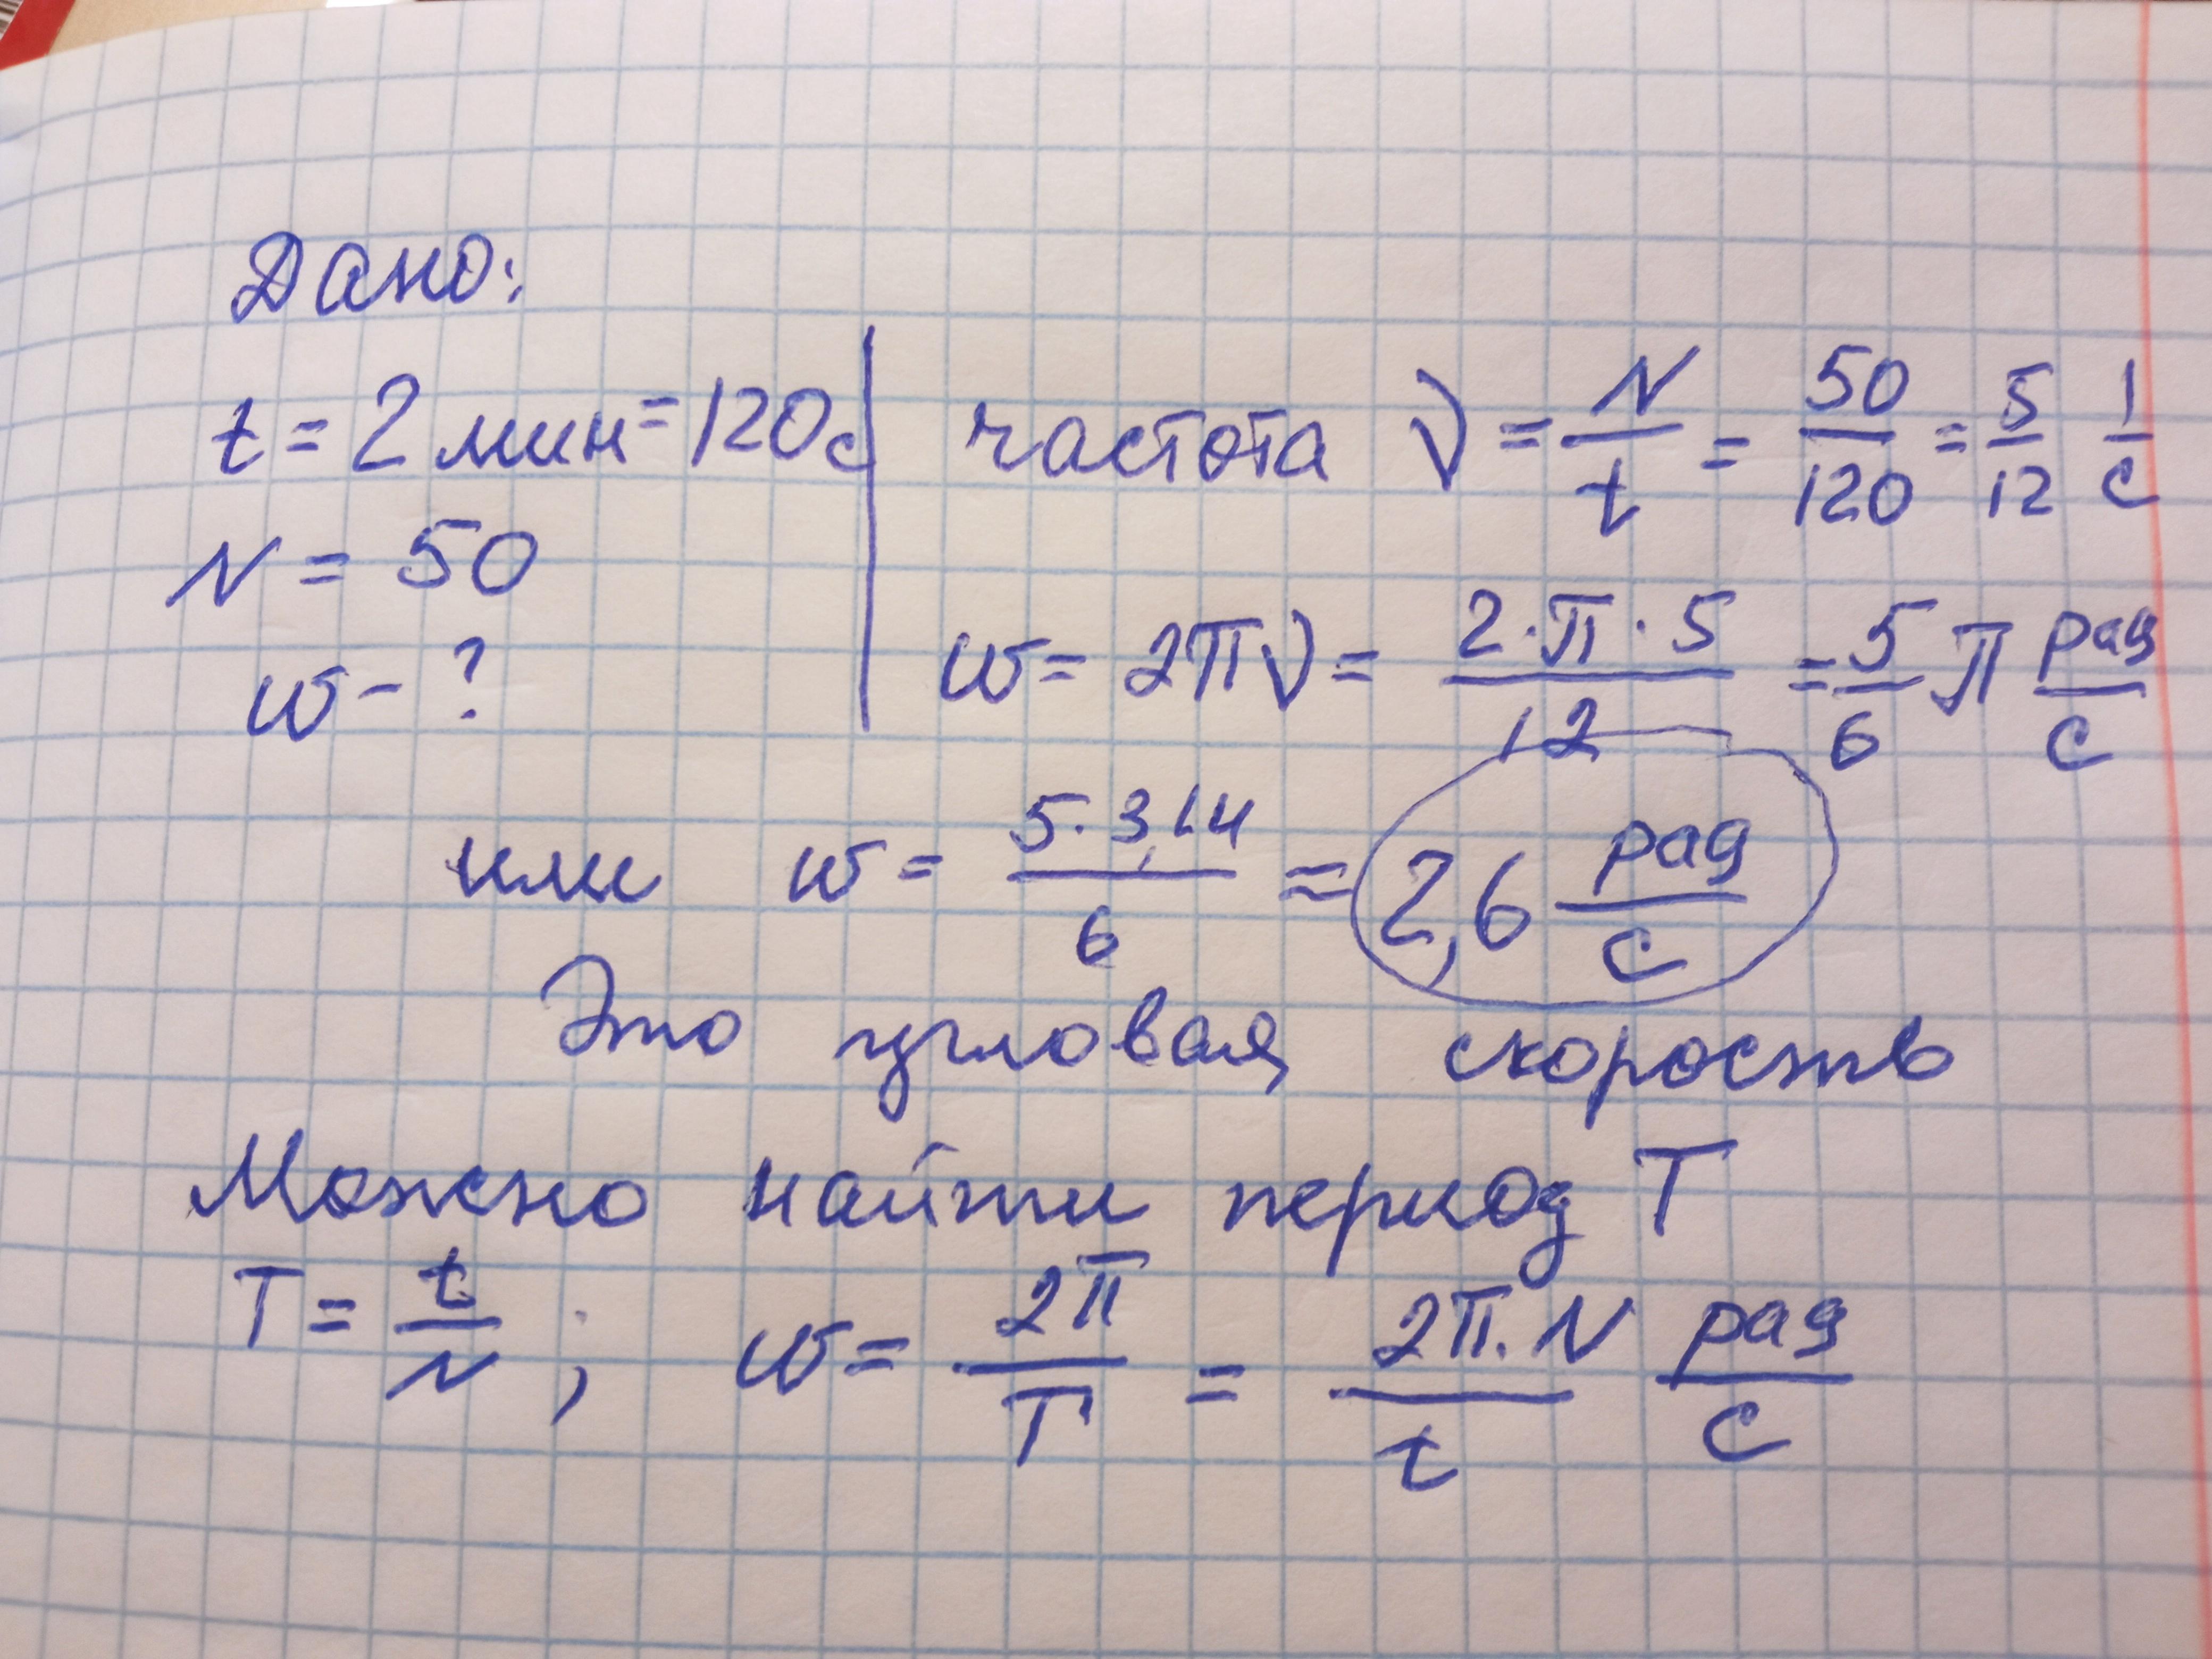 Дано:
t = 2 мин = 120с
N = 50
w - ?
частота ν = N/t = 50/120 = 5/12 1/с
w = 2πν = 2·π·5/12 = 5/6 π рад/с
или w = 5·3,14/6 ≈ 2,6 рад/с
Это угловая скорость
Можно найти период T
T = t/N ; w = 2π/T = 2π·N/t рад/с